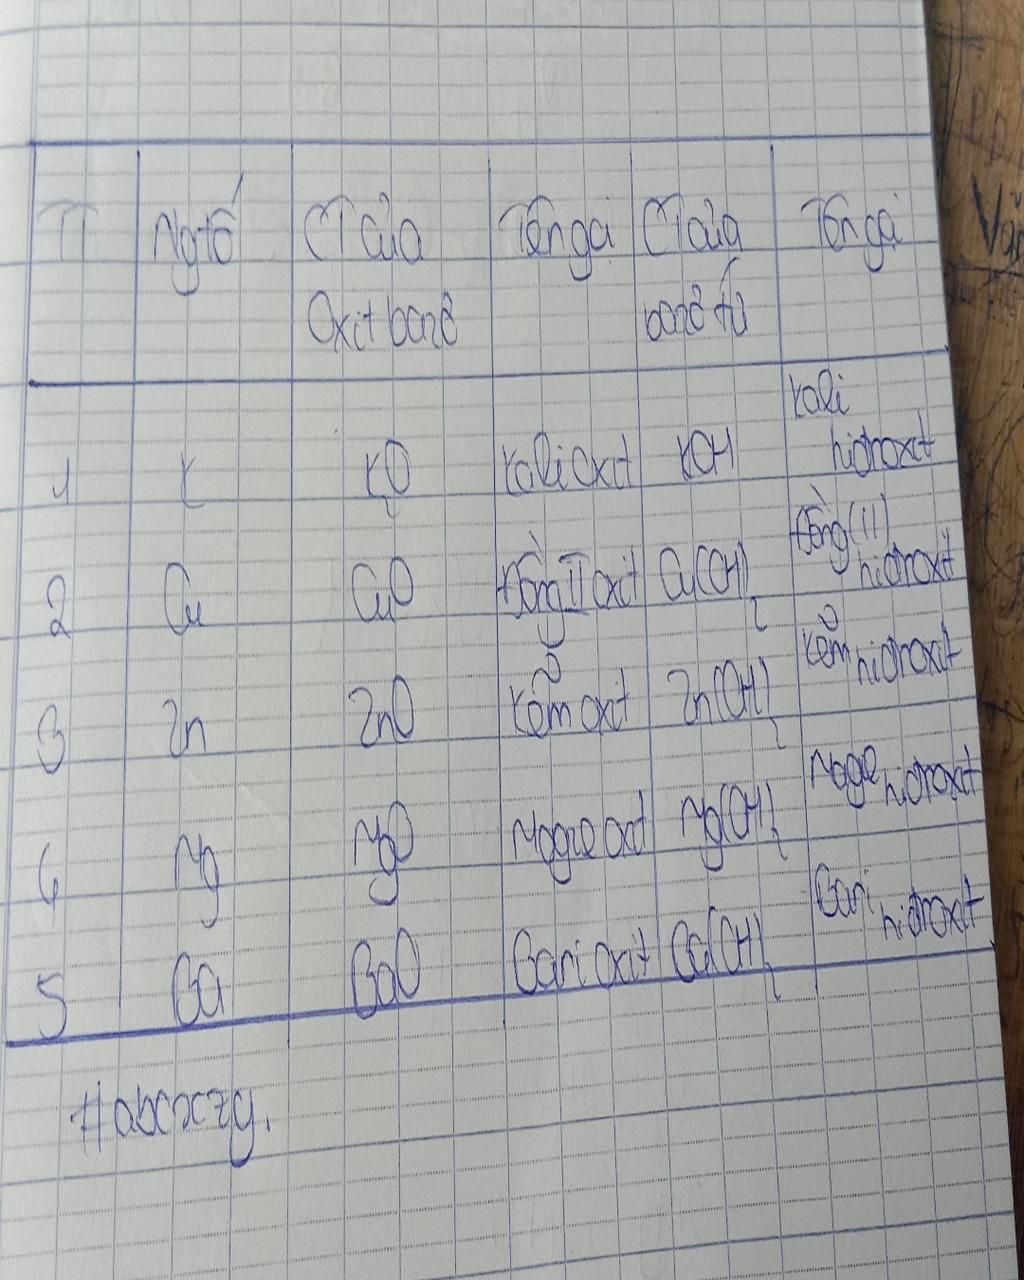 TT Ng tố CT của Tên gọi CT của Tên gọi
Oxit bazơ bazơ tư
1 K K₂O Kali oxit KOH Kali hiđroxit
2 Cu CuO Đồng II oxit Cu(OH)₂ Đồng (II) hiđroxit
3 Zn ZnO Kẽm oxit Zn(OH)₂ Kẽm hiđroxit
4 Mg MgO Magie oxit Mg(OH)₂ Magie hiđroxit
5 Ba BaO Bari oxit Ba(OH)₂ Bari hiđroxit
#abcxczy.